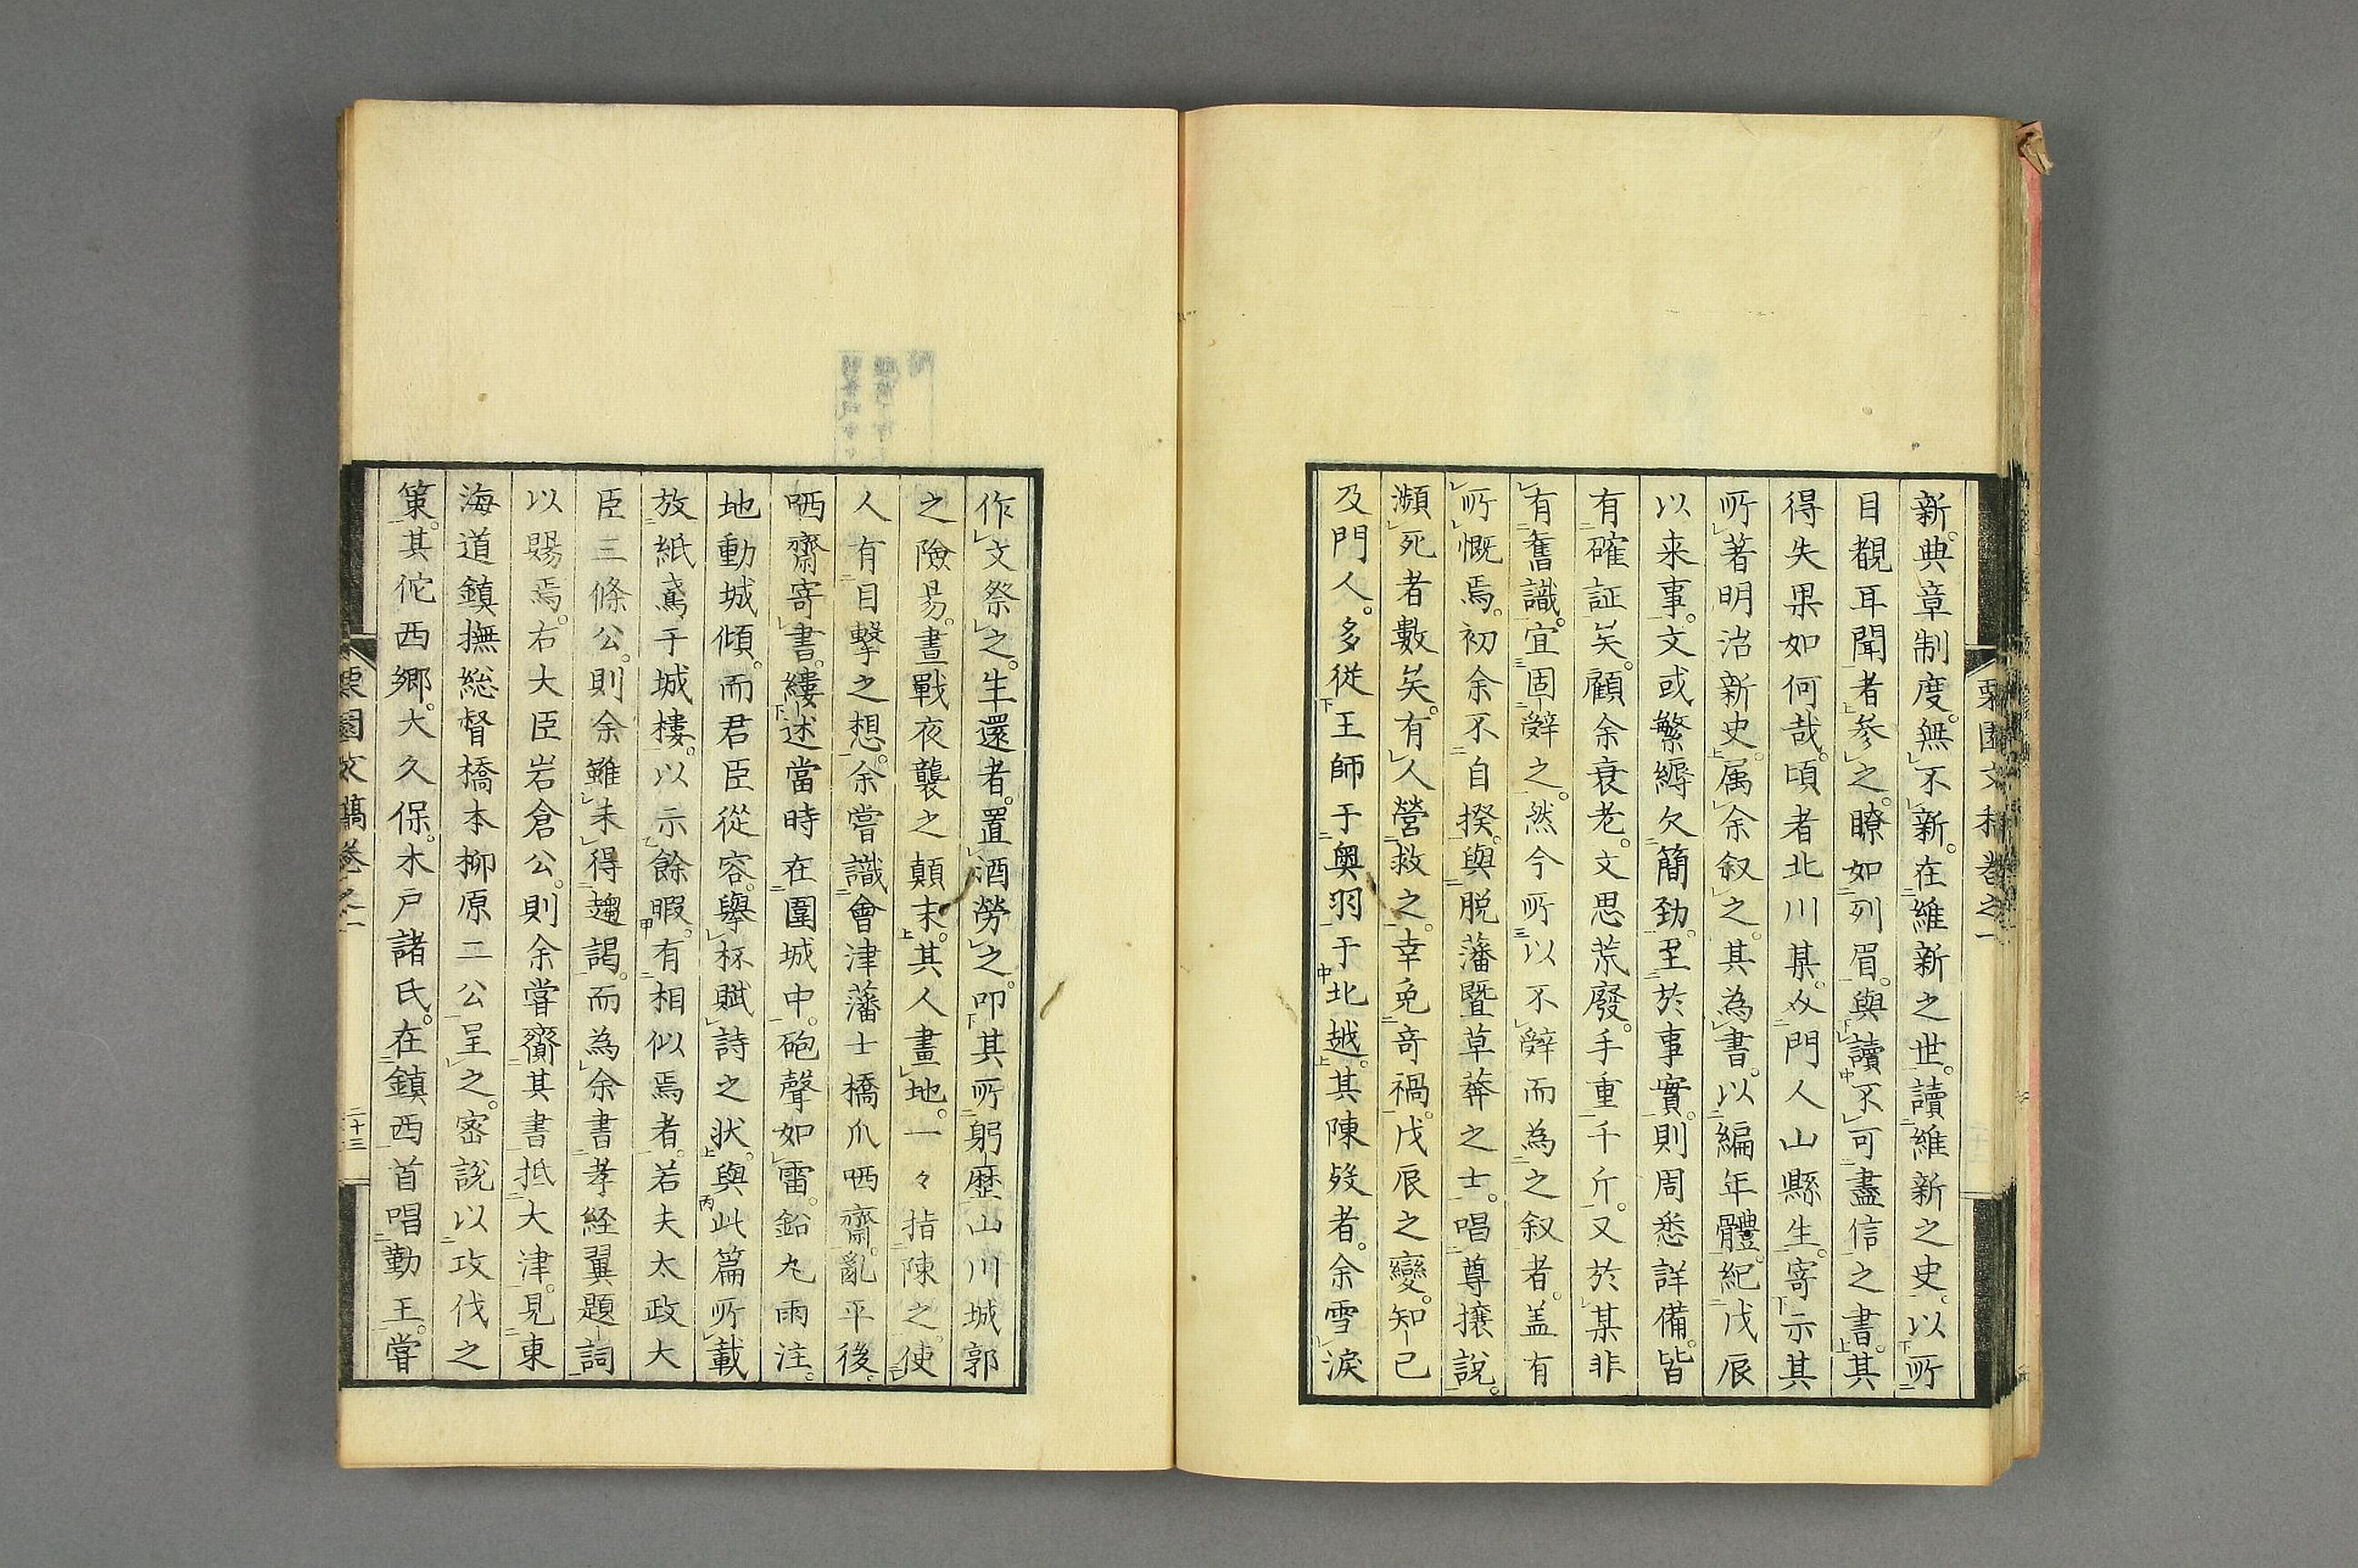 新。典章制度。無不新。在維新之世。讀維新之史。以所
目覩耳聞者參之。瞭如列眉。與讀不可盡信之書。其
得失果如何哉。頃者北川某。介門人山縣生。寄示其
所著明治新史。属余叙之。其為書。以編年體。紀戊辰
以来事。文或繁縟欠簡勁。至於事實。則周悉詳備。皆
有確証矣。顧余衰老。文思荒廢。手重千斤。又於某非
有舊識。宜固辭之。然今所以不辭而為之叙者。盖有
所慨焉。初余不自揆。與脱藩曁草莽之士。唱尊攘説。
瀕死者數矣。有人營救之。幸免奇禍。戊辰之變。知己
及門人。多従王師于奥羽于北越。其陳歿者。余雪涙
作文祭之。生還者。置酒勞之。叩其所躬歷山川城郭
之險易。晝戰夜襲之顛末。其人畫地。一々指陳之。使
人有目擊之想。余嘗識會津藩士橋爪哂齋。亂平後。
哂齋寄書。縷述當時在圍城中。砲聲如雷。鉛丸雨注。
地動城傾。而君臣従容。擧杯賦詩之状。與此篇所載
放紙鳶于城樓。以示餘暇。有相似焉者。若夫太政大
臣三條公。則余雖未得趨謁。而為余書孝経翼題詞
以賜焉。右大臣岩倉公。則余嘗齎其書抵大津。見東
海道鎮撫総督橋本柳原二公呈之。密説以攻伐之
策。其佗西郷。大久保。木戸諸氏。在鎮西首唱勤王。嘗
栗園文稿巻之一
二十三